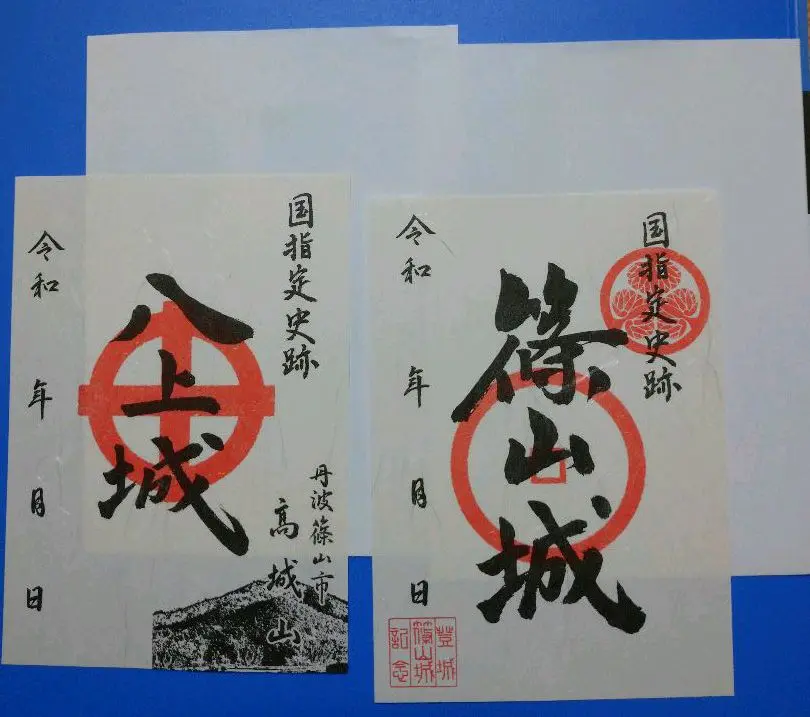 国指定史跡
八上城
丹波篠山市
高城山
令和 年 月 日
国指定史跡
篠山城
令和 年 月 日
登城
篠山城
記念